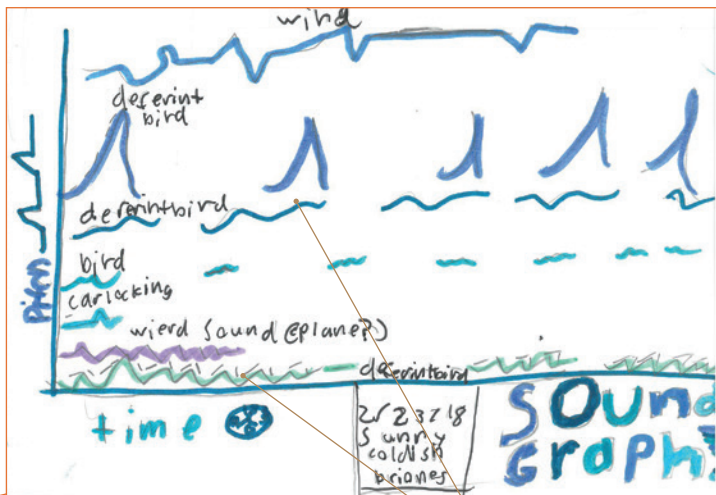 wind
deferint
bird
dererintbird
bird
carlocking
wierd sound (plane?)
dererintbird
Pitch
time
Sunny
coldish
briones
SOUnd
GRAPH